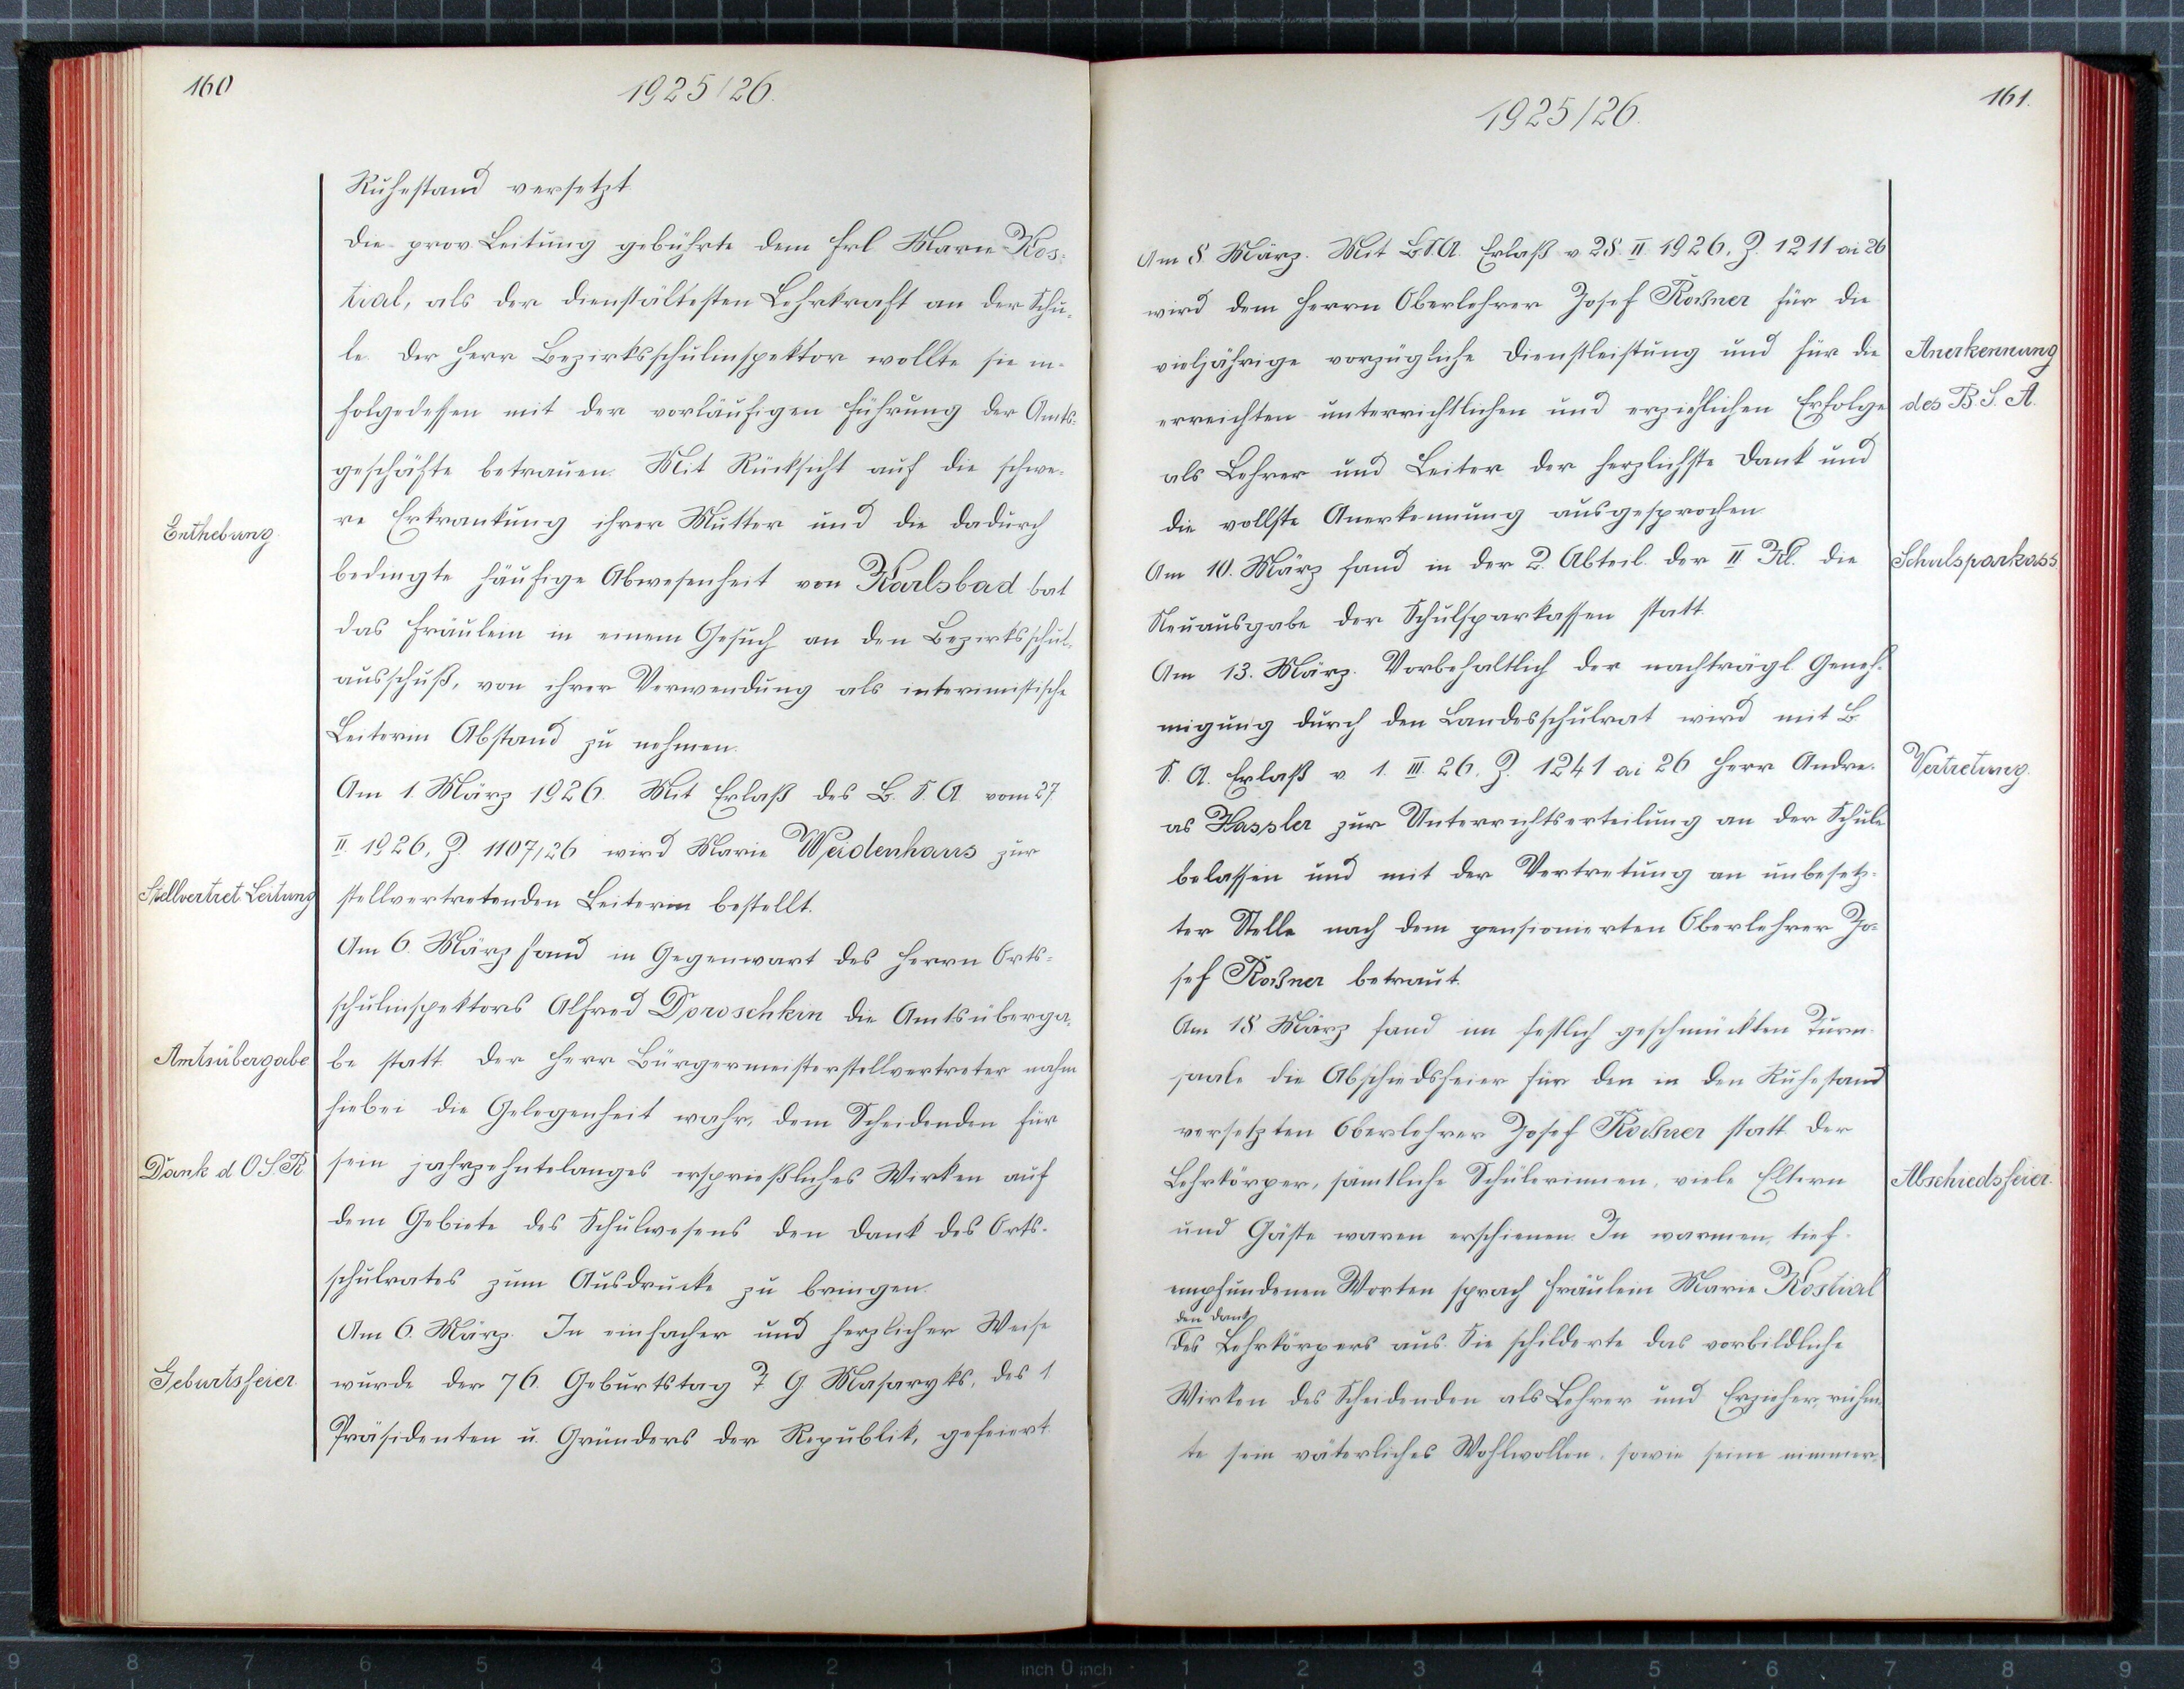 160
1925/26.
Ruhestand versetzt.
Die prov. Leitung gebührte dem Frl. Marie Kos-
tial, als der dienstältesten Lehrkraft an der Schu-
le. Der Herr Bezirksschulinspektor wollte sie in-
folgedessen mit der vorläufigen Führung der Amts-
geschäfte betrauen. Mit Rücksicht auf die schwe-
Enthebung.
re Erkrankung ihrer Mutter und die dadurch
bedingte häufige Abwesenheit von Karlsbad bat
das Fräulein in einem Gesuch an den Bezirksschul-
ausschuß, von ihrer Verwendung als interimistische
Leiterin Abstand zu nehmen.
Am 1. März 1926. Mit Erlaß des B. S. A. vom 27.
II. 1926, Z. 1107/26 wird Marie Weidenhaus zur
Stellvertret. Leitung
stellvertretenden Leiterin bestellt.
Am 6. März fand in Gegenwart des Herrn Orts-
schulinspektors Alfred Doroschkin die Amtsüberga-
Amtsübergabe
be statt. Der Herr Bürgermeisterstellvertreter nahm
hiebei die Gelegenheit wahr, dem Scheidenden für
Dank d. O. S. R.
sein jahrzehntelanges ersprießliches Wirken auf
dem Gebiete des Schulwesens den Dank des Orts-
schulrates zum Ausdrucke zu bringen.
Am 6. März. In einfacher und herzlicher Weise
Geburtsfeier.
wurde der 76. Geburtstag T. G. Masaryks, des 1.
Präsidenten u. Gründers der Republik, gefeiert.
161.
1925/26.
Am 8. März. Mit B.S.A. Erlaß v. 28. II. 1926, Z. 1211 ai 26
wird dem Herrn Oberlehrer Josef Roßner für die
vieljährige vorzügliche Dienstleistung und für die
Anerkennung
erreichten unterrichtlichen und erziehlichen Erfolge
des B. S. A.
als Lehrer und Leiter der herzlichste Dank und
die vollste Anerkennung ausgesprochen.
Am 10. März fand in der 2. Abteil. der II. Kl. die
Schulsparkass.
Neuausgabe der Schulsparkassen statt.
Am 13. März. Vorbehaltlich der nachträgl. Geneh-
migung durch den Landesschulrat wird mit B.
S. A. Erlaß v. 1. III. 26, Z. 1241 ai 26 Herr Andre-
Vertretung.
as Hassler zur Unterrichtserteilung an der Schule
belassen und mit der Vertretung an unbesetz-
ter Stelle nach dem pensionierten Oberlehrer Jo-
sef Roßner betraut.
Am 18. März fand im festlich geschmückten Turn-
saale die Abschiedsfeier für den in den Ruhestand
versetzten Oberlehrer Josef Roßner statt. Der
Lehrkörper, sämtliche Schülerinnen, viele Eltern
Abschiedsfeier.
und Gäste waren erschienen. In warmen, tief-
empfundenen Worten sprach Fräulein Marie Kostial
den Dank
des Lehrkörpers aus. Sie schilderte das vorbildliche
Wirken des Scheidenden als Lehrer und Erzieher, rühm-
te sein väterliches Wohlwollen, sowie seine nimmer-
9 8 7 6 5 4 3 2 1 inch 0 inch 1 2 3 4 5 6 7 8 9